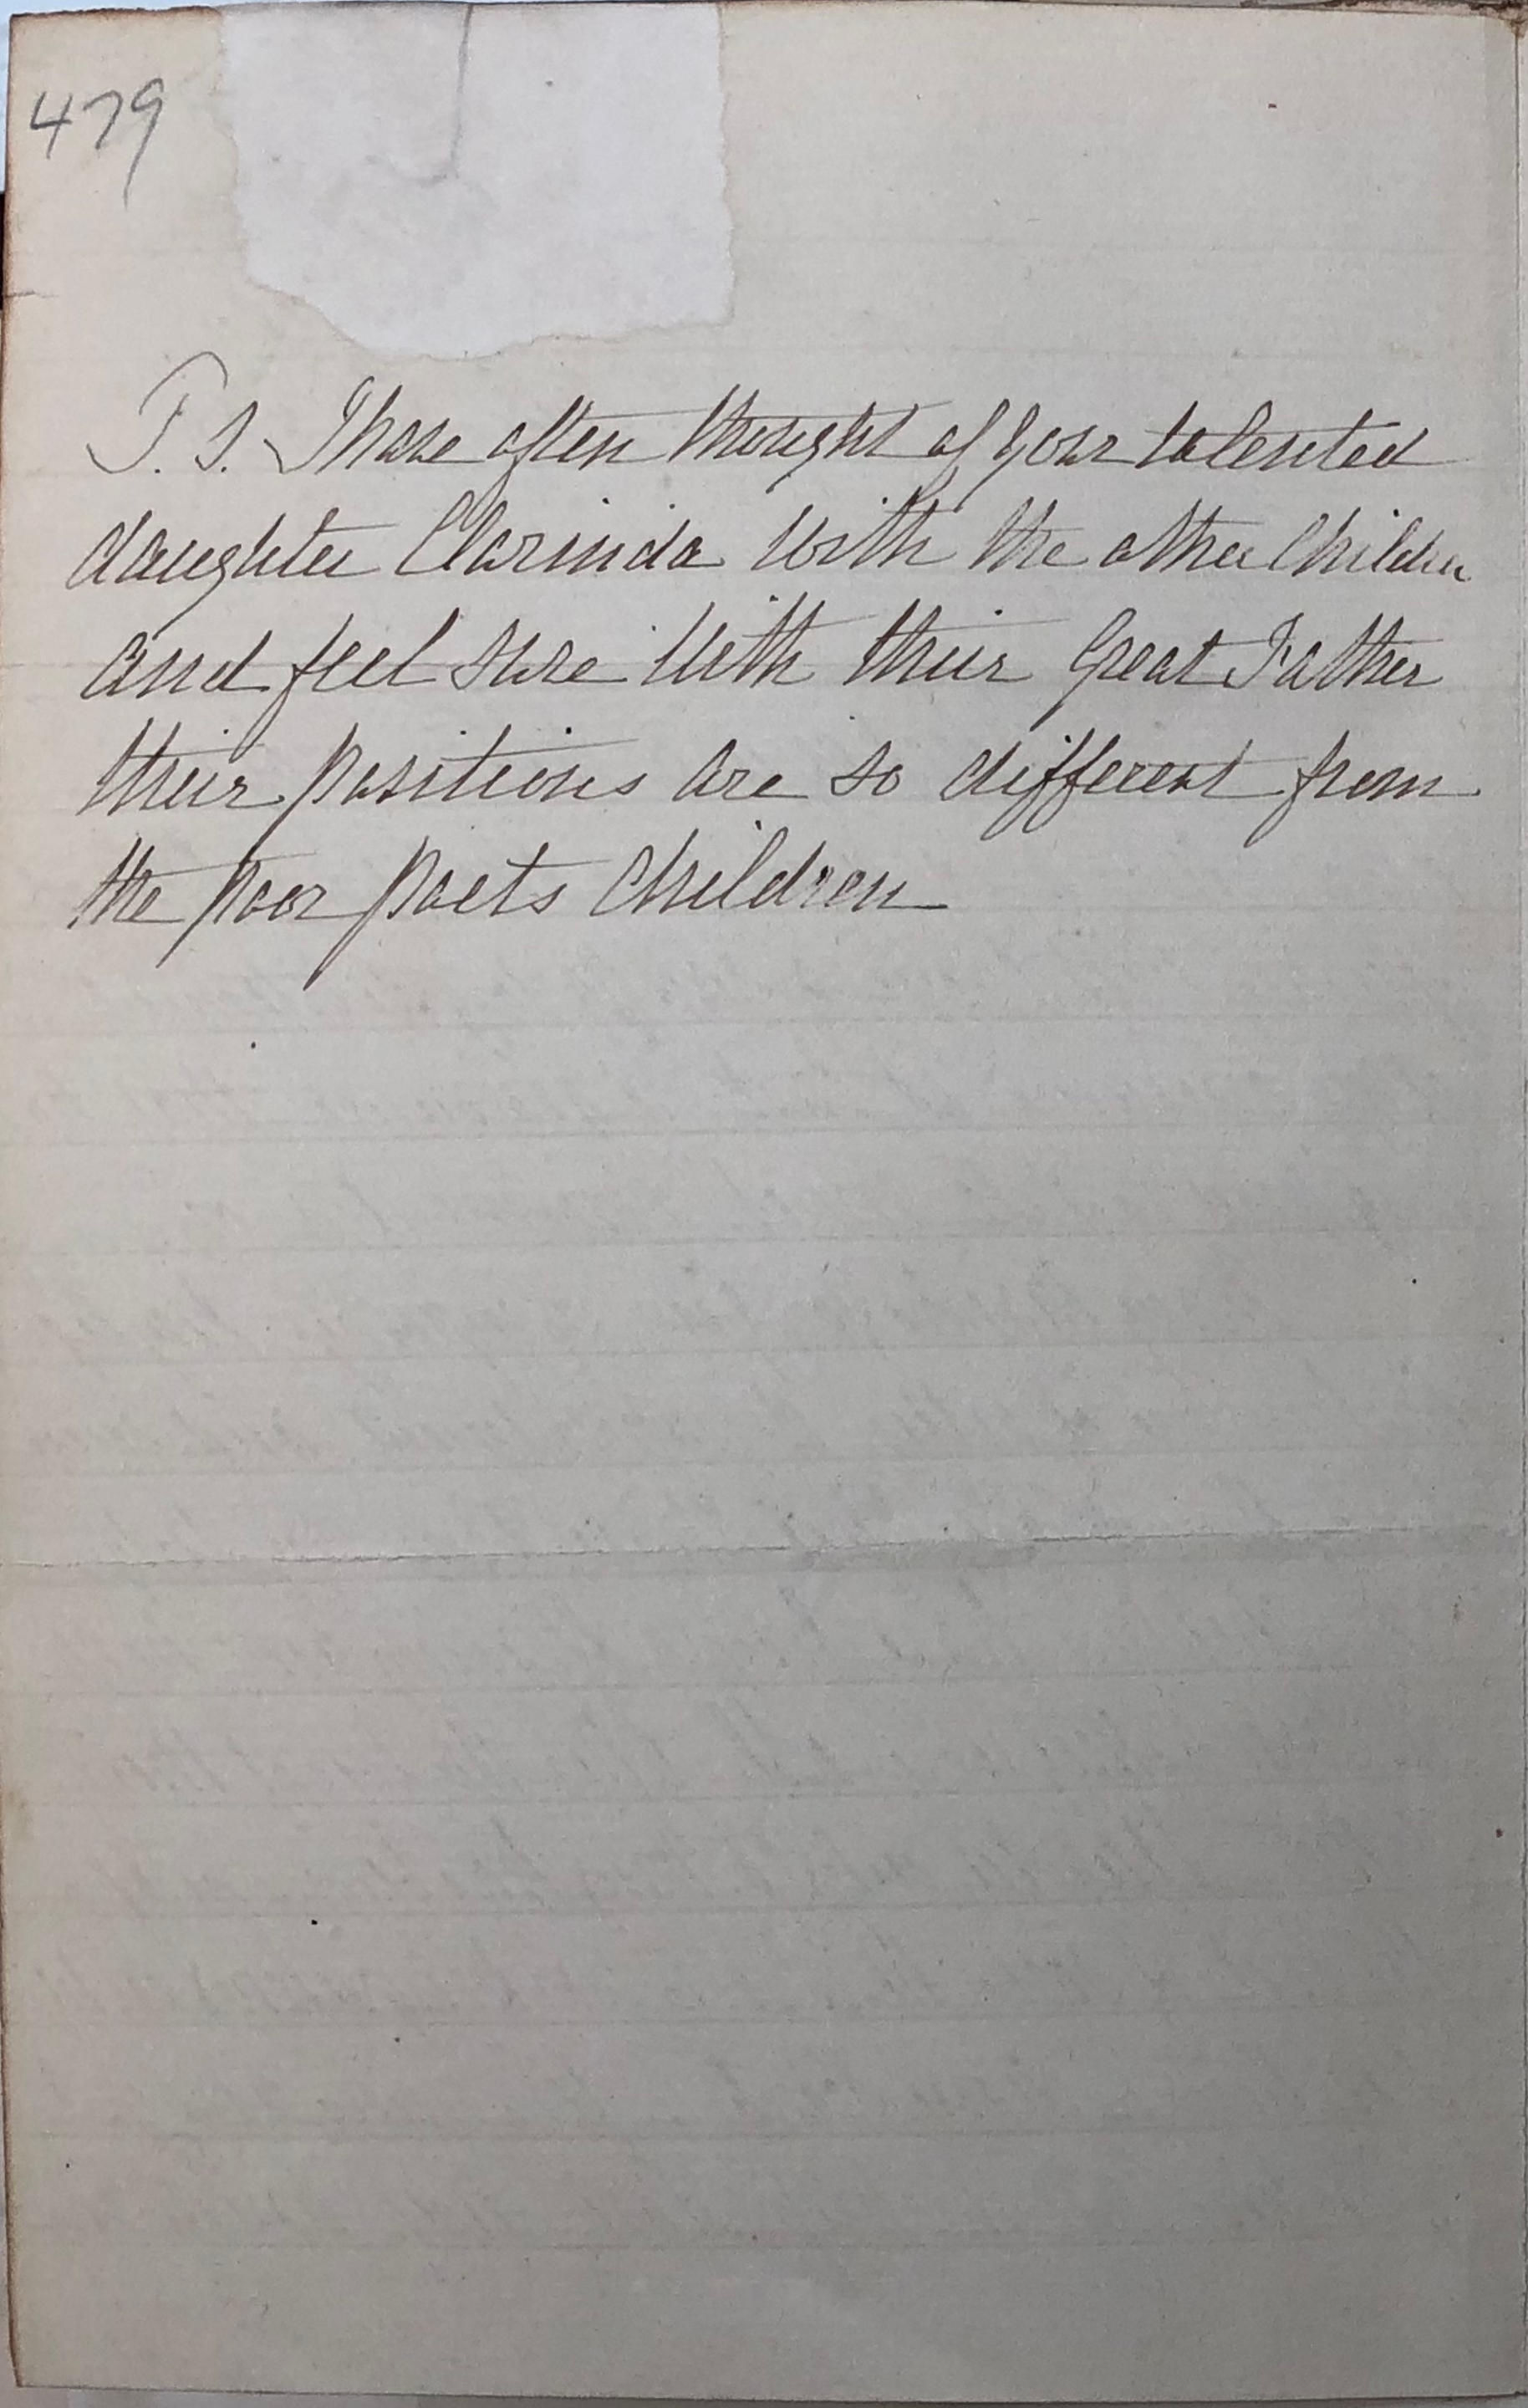 479
P.S. I have often thought of your talented
daughter Clarinda with the other Children
and feel sure with their Great Father
their positions are so different from
the poor poets Children